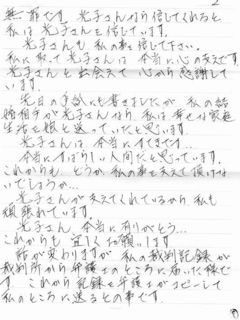 2
無罪です。光子さんなら信じてくれると
私は光子さんを信じています。
光子さんも私の事を信じて下さい。
私に取って光子さんは本当に心の支えです。
光子さんと出会えて心から感謝して
います。
先日の手紙にも書きましたが私の結
婚相手が光子さんなら、私は幸せな家庭
生活を娘と送っていたと思います。
光子さんは本当にすてきです…
本当にすばらしい人間だと思っています。
これからも どうか私の事を支えて頂けな
いでしょうか…
光子さんが支えてくれているから私も
頑張れています。
光子さん、本当に有りがとう…
これからも宜しくお願いします
話が変わりますが 私の裁判記録が
裁判所から弁護士のところに届いた様で
す。これから記録を弁護士がコピーして
私のところに送るとの事です。